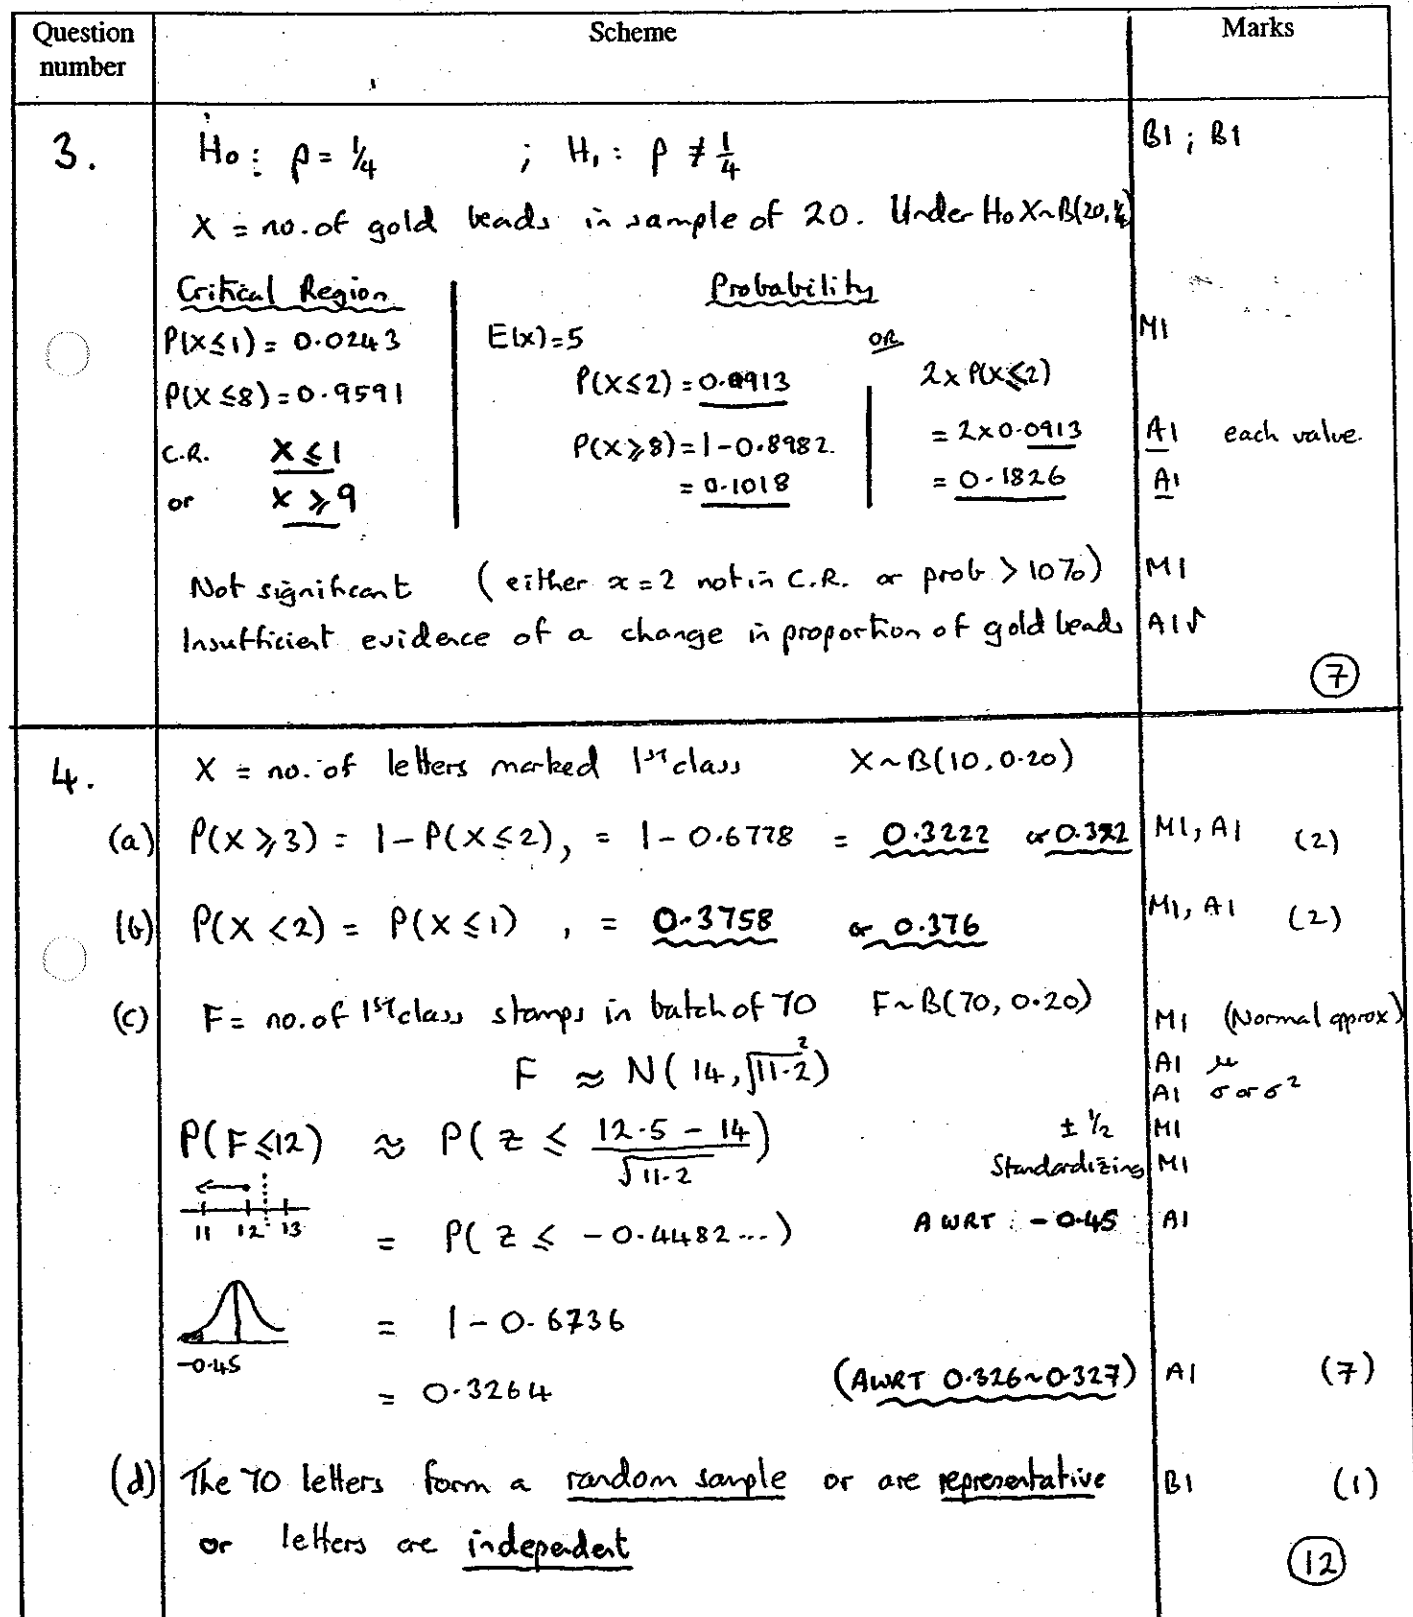 Question number Scheme Marks
3. H₀: p = 1/4 ; H₁: p ≠ 1/4 B1 ; B1
X = no. of gold beads in sample of 20. Under H₀ X~B(20, ¼)
Critical Region Probability
P(X≤1) = 0.0243 E(X)=5 OR M1
P(X≤8) = 0.9591 P(X≤2) = 0.0913 2 x P(X≤2)
C.R. X ≤ 1 P(X≥8) = 1-0.8982. = 2x0.0913 A1 each value.
or X ≥ 9 = 0.1018 = 0.1826 A1
Not significant (either x=2 not in C.R. or prob > 10%) M1
Insufficient evidence of a change in proportion of gold beads A1√
7
4. X = no. of letters marked 1st class X~B(10, 0.20)
(a) P(X≥3) = 1-P(X≤2), = 1-0.6778 = 0.3222 or 0.322 M1, A1 (2)
(b) P(X<2) = P(X≤1) , = 0.3758 or 0.376 M1, A1 (2)
(c) F = no. of 1st class stamps in batch of 70 F~B(70, 0.20) M1 (Normal approx)
F ≈ N(14, √11.2²) A1 μ
A1 σ or σ²
P(F≤12) ≈ P(z ≤ (12.5 - 14)/√11.2) ± 1/2 M1
Standardizing M1
11 12 13
= P(z ≤ -0.4482...) AWRT : -0.45 A1
= 1-0.6736
-0.45
= 0.3264 (AWRT 0.326~0.327) A1 (7)
(d) The 70 letters form a random sample or are representative B1 (1)
or letters are independent
12